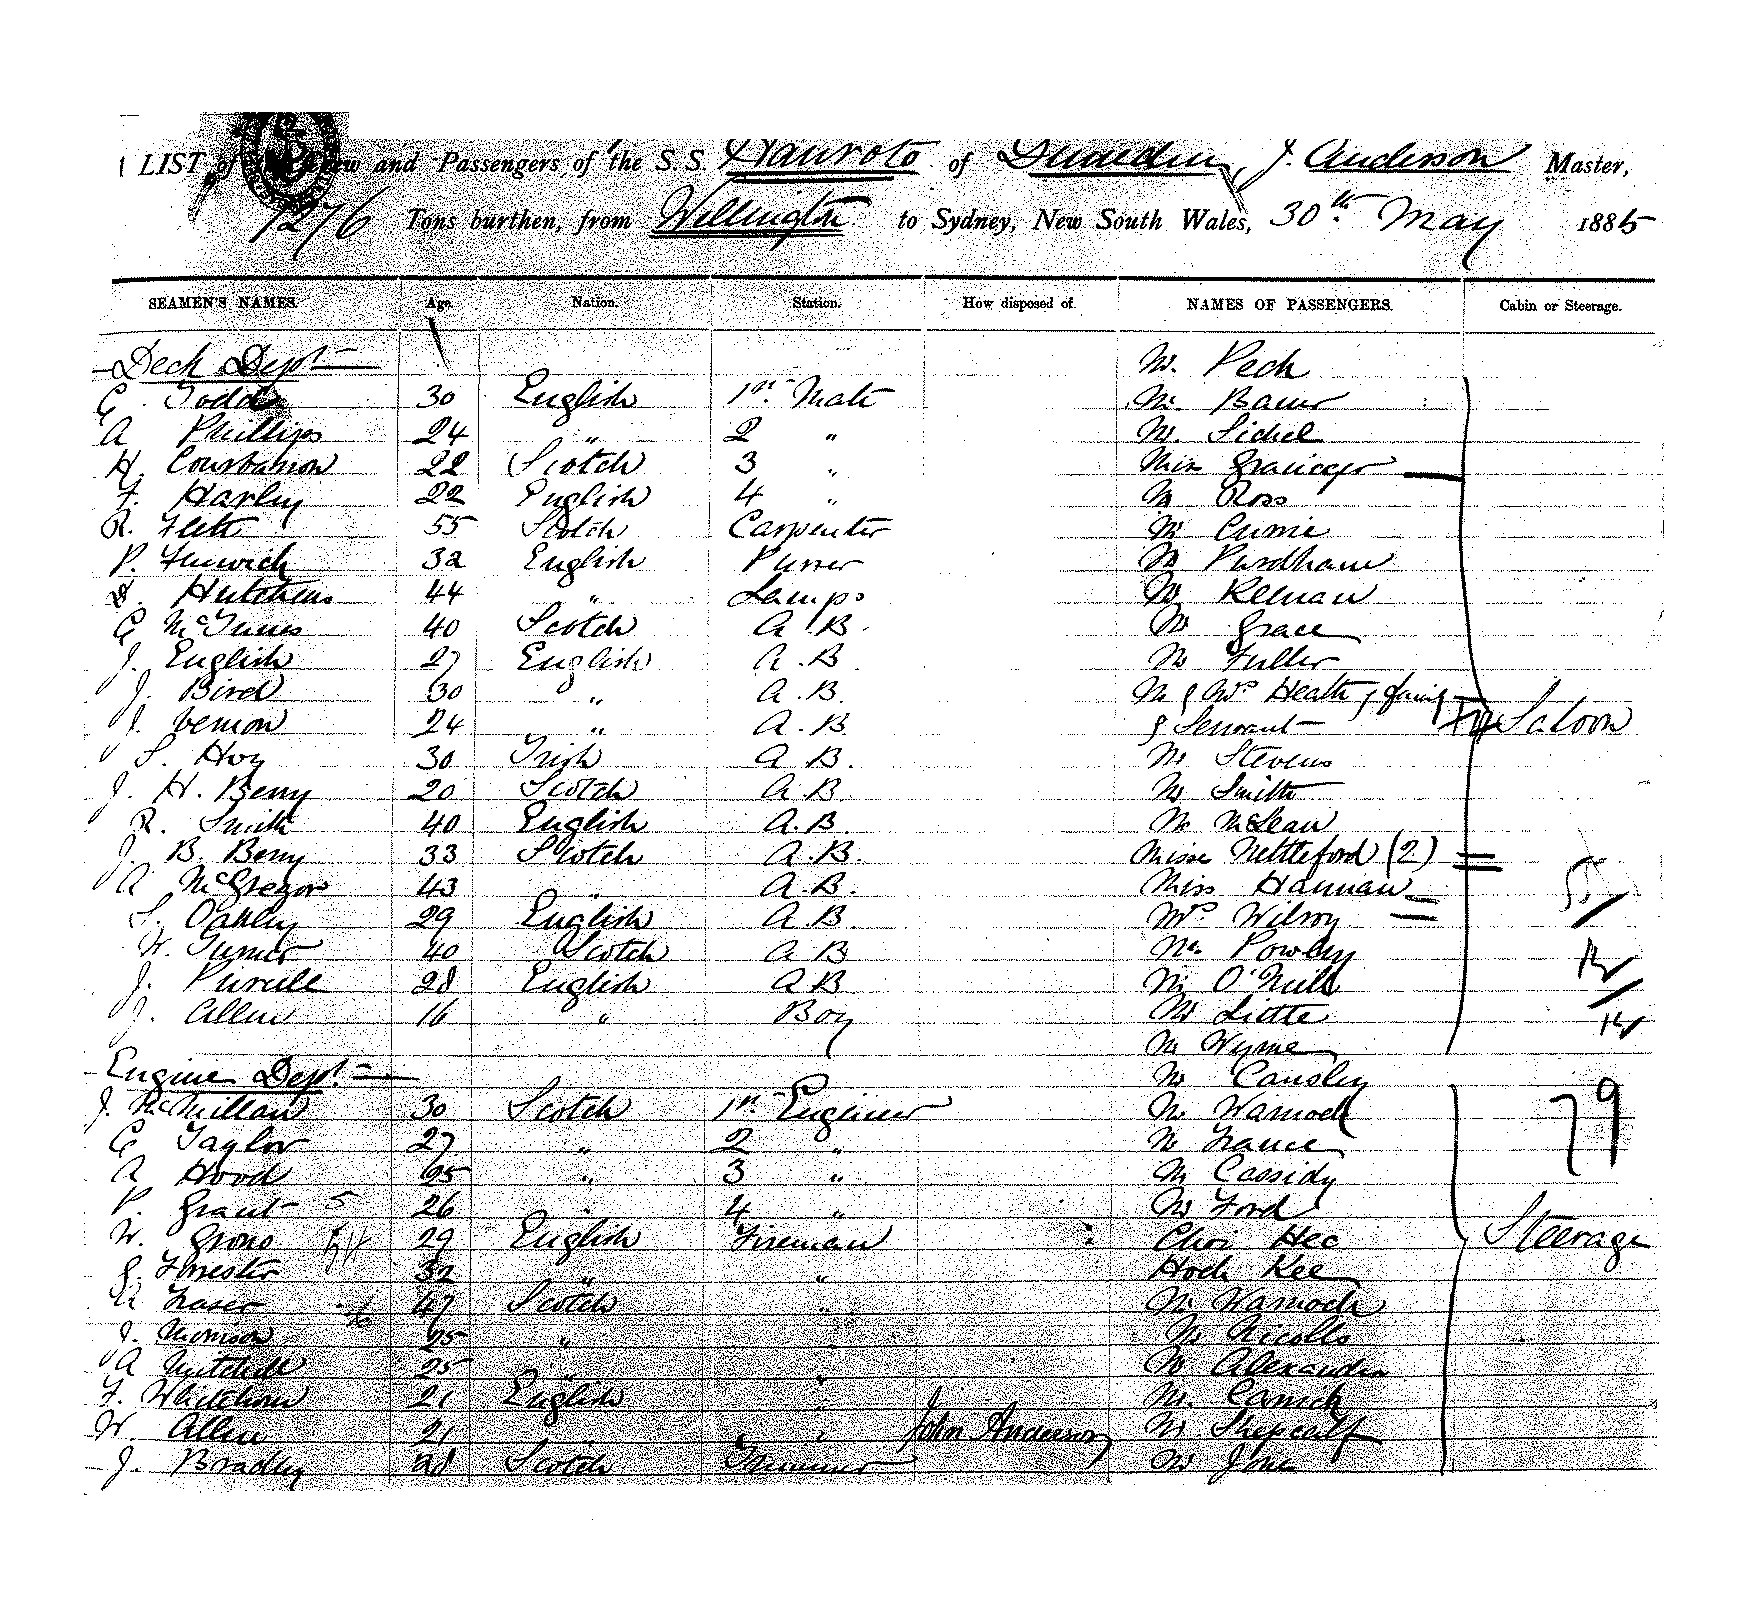 LIST of the Crew and Passengers of the S.S. Hauroto of Dunedin, J. Anderson Master,
1276 Tons burthen, from Wellington to Sydney, New South Wales, 30th May 1885
SEAMEN'S NAMES. Age. Nation. Station. How disposed of. NAMES OF PASSENGERS. Cabin or Steerage.
Deck Dept. Mr. Peck
G. Todd 30 English 1st Mate Mr. Bauer
A Phillips 24 " 2 " Mr. Sichel
H. 22 Scotch 3 " Miss
F. Harley 22 English 4 " Mr Ross
R. Flett 55 Scotch Carpenter Mr Currie
P. Fenwick 32 English Purser Mr Purdham
Hutchens 44 " Lamps Mr Keenan
G McInnes 40 Scotch A.B. Mr Grace
J. English 27 English A.B Mr Fuller
J. Bird 30 " A.B. Mr & Mrs Heath & family
J. Vernon 24 " A.B. & Servant Saloon
S. Hoy 30 Irish A B. Mr Stevens
J. H. Berry 20 Scotch A B. Mr Smith
R. Smith 40 English A.B. Mr McLean
J. B. Berry 33 Scotch A.B. Misses Nettleford (2)
A McGregor 43 " A.B. Miss Hannan
S. Oakley 29 English A B Mrs Wilroy
W. Turner 40 Scotch A B Mr Powley
J. Purcell 28 English A B Mr O'Neill
J. Allen 16 " Boy Mr Little
Mr Wynne
Engine Dept. Mr Cansley
J. McMillan 30 Scotch 1st Engineer Mr Warnock
G Taylor 27 " 2 " Mr France 79
A Hood 25 " 3 " Mr Cassidy
P. Grant 26 " 4 " Mr Ford
W. Grono 29 English Fireman Choi Hee Steerage
G Forrester 32 " " Hock Kee
A Fraser 47 Scotch " Mr Warnock
J. Morrison 25 " Mr Nicolls
A Mitchell 25 " " Mr Alexander
F. Whitehorn 21 English " Mr Carrick
W. Allen 21 " " John Anderson Mr Shepcalf
J. Bradley 28 Scotch Trimmer Mr Jone